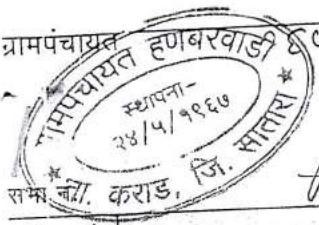 ग्रामपंचायत
ग्रामपंचायत हणबरवाडी
स्थापना-
२४/५/१९६७
ता. कराड, जि. सातारा
सभा